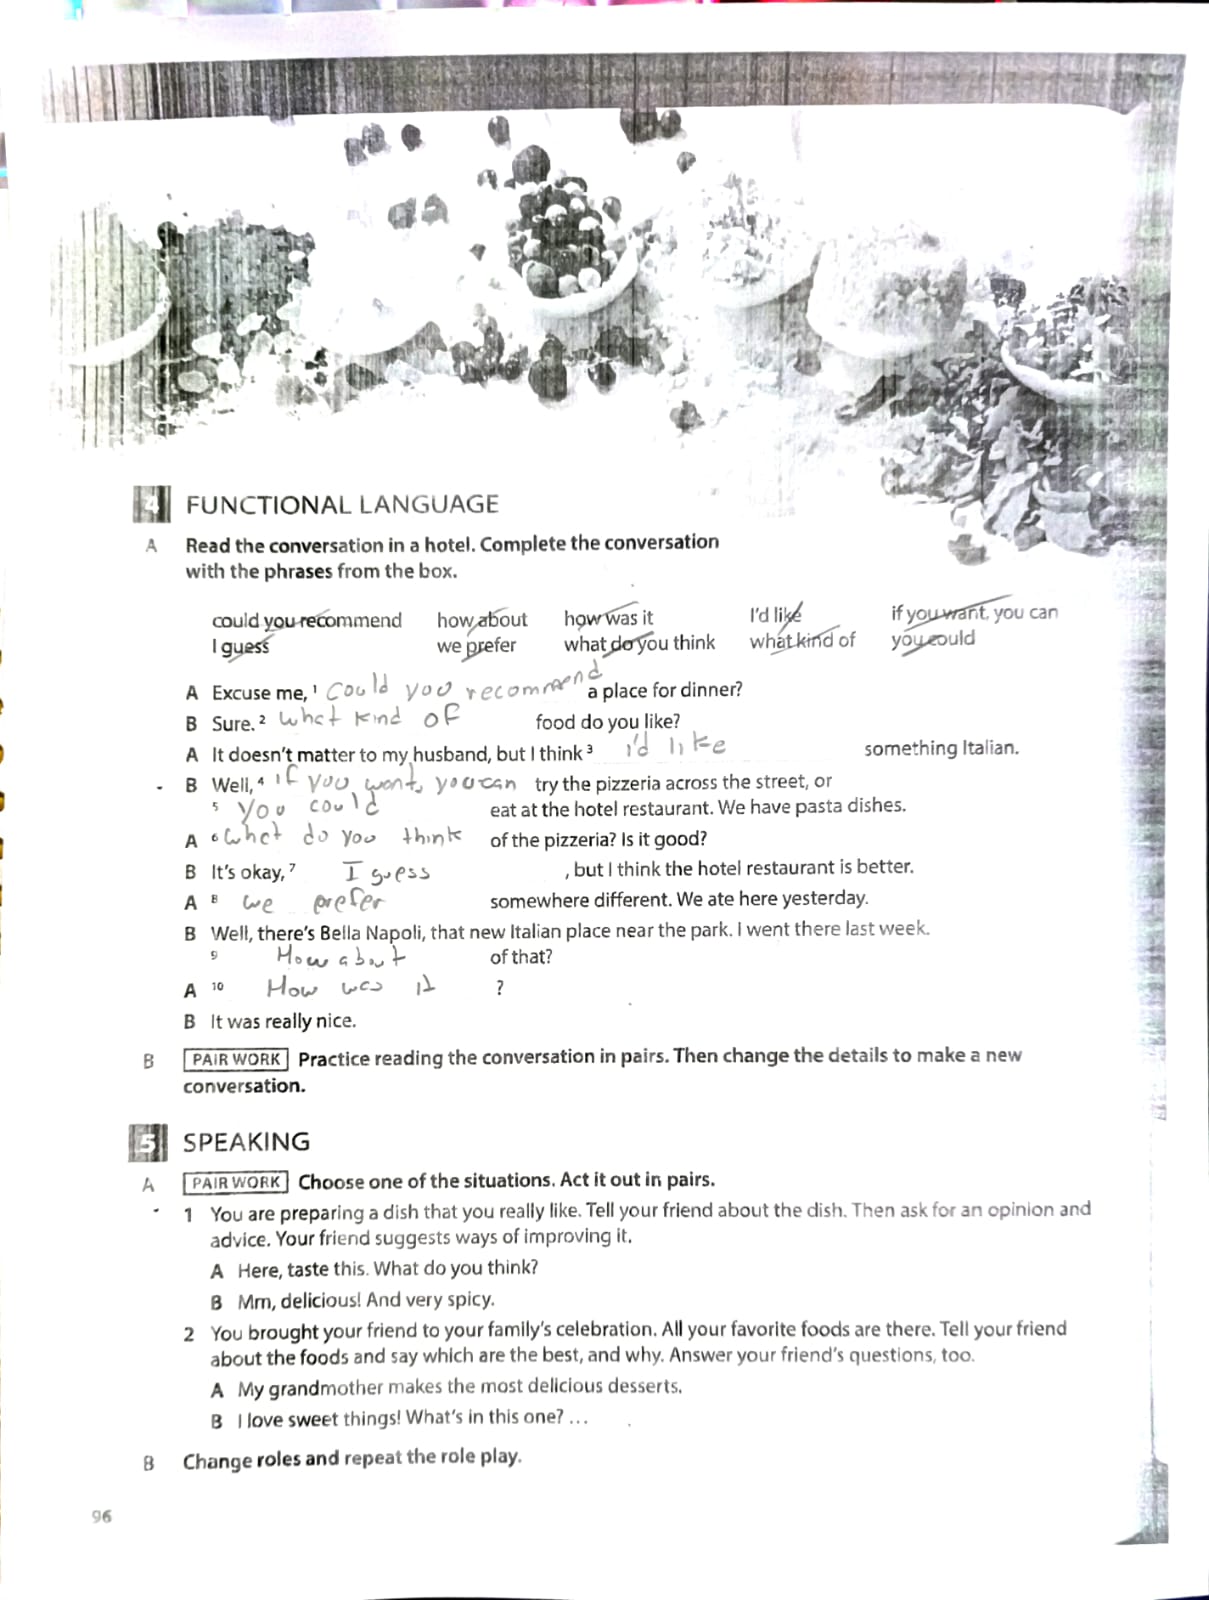 4 FUNCTIONAL LANGUAGE
A Read the conversation in a hotel. Complete the conversation
with the phrases from the box.
could you recommend how about how was it I'd like if you want, you can
I guess we prefer what do you think what kind of you could
A Excuse me, 1 Could you recommend a place for dinner?
B Sure. 2 What kind of food do you like?
A It doesn't matter to my husband, but I think 3 i'd like something Italian.
B Well, 4 if you want, you can try the pizzeria across the street, or
5 you could eat at the hotel restaurant. We have pasta dishes.
A 6 What do you think of the pizzeria? Is it good?
B It's okay, 7 I guess , but I think the hotel restaurant is better.
A 8 we prefer somewhere different. We ate here yesterday.
B Well, there's Bella Napoli, that new Italian place near the park. I went there last week.
9 How about of that?
A 10 How was it ?
B It was really nice.
B PAIR WORK Practice reading the conversation in pairs. Then change the details to make a new
conversation.
5 SPEAKING
A PAIR WORK Choose one of the situations. Act it out in pairs.
1 You are preparing a dish that you really like. Tell your friend about the dish. Then ask for an opinion and
advice. Your friend suggests ways of improving it.
A Here, taste this. What do you think?
B Mm, delicious! And very spicy.
2 You brought your friend to your family's celebration. All your favorite foods are there. Tell your friend
about the foods and say which are the best, and why. Answer your friend's questions, too.
A My grandmother makes the most delicious desserts.
B I love sweet things! What's in this one? ...
B Change roles and repeat the role play.
96